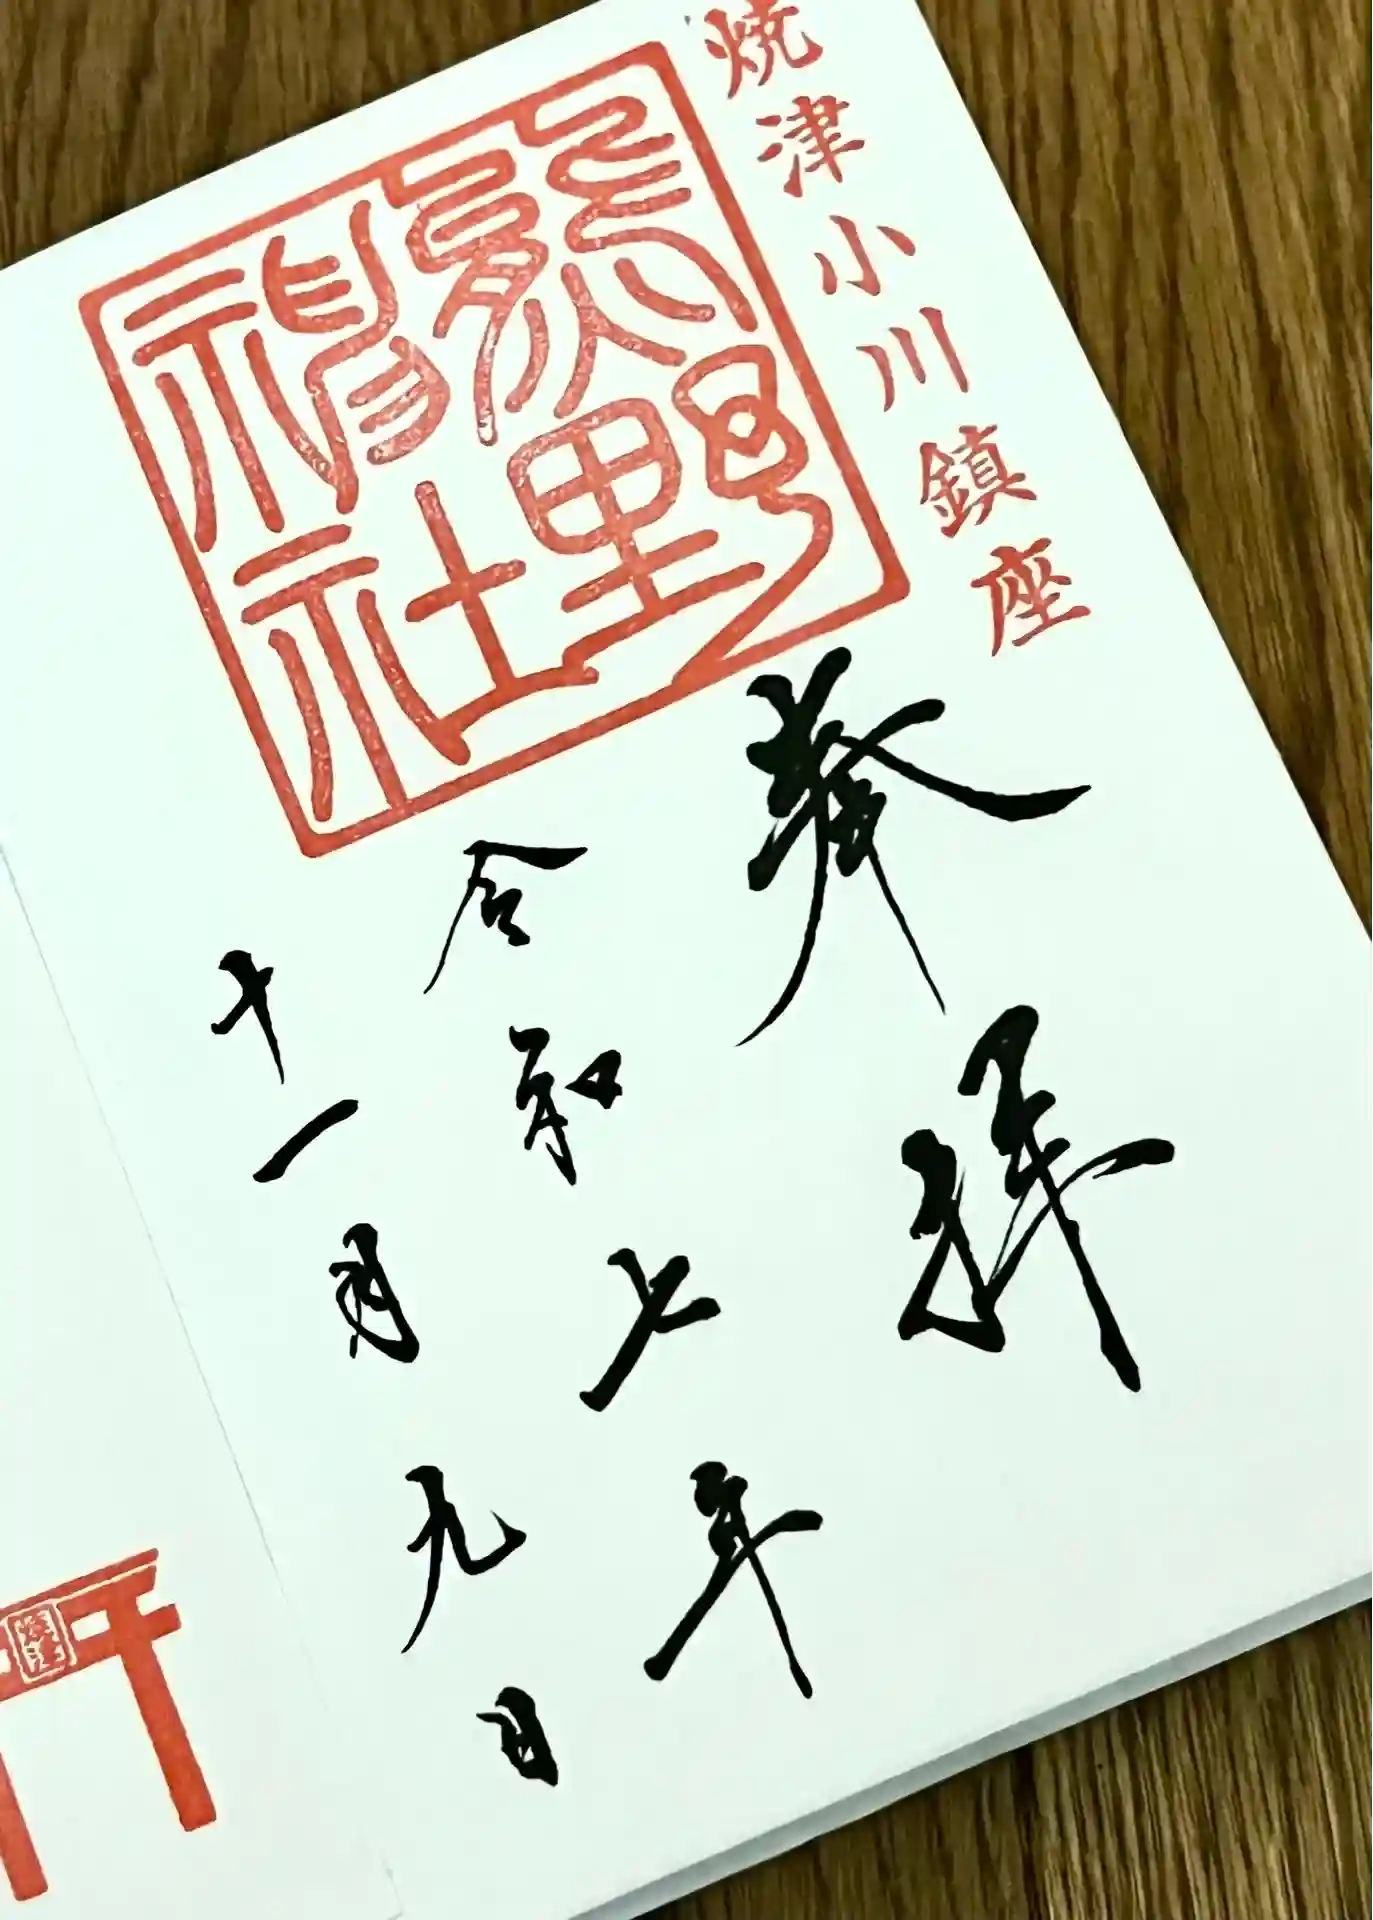 焼津小川鎮座
熊野神社
奉拝
令和七年
十一月九日
焼津